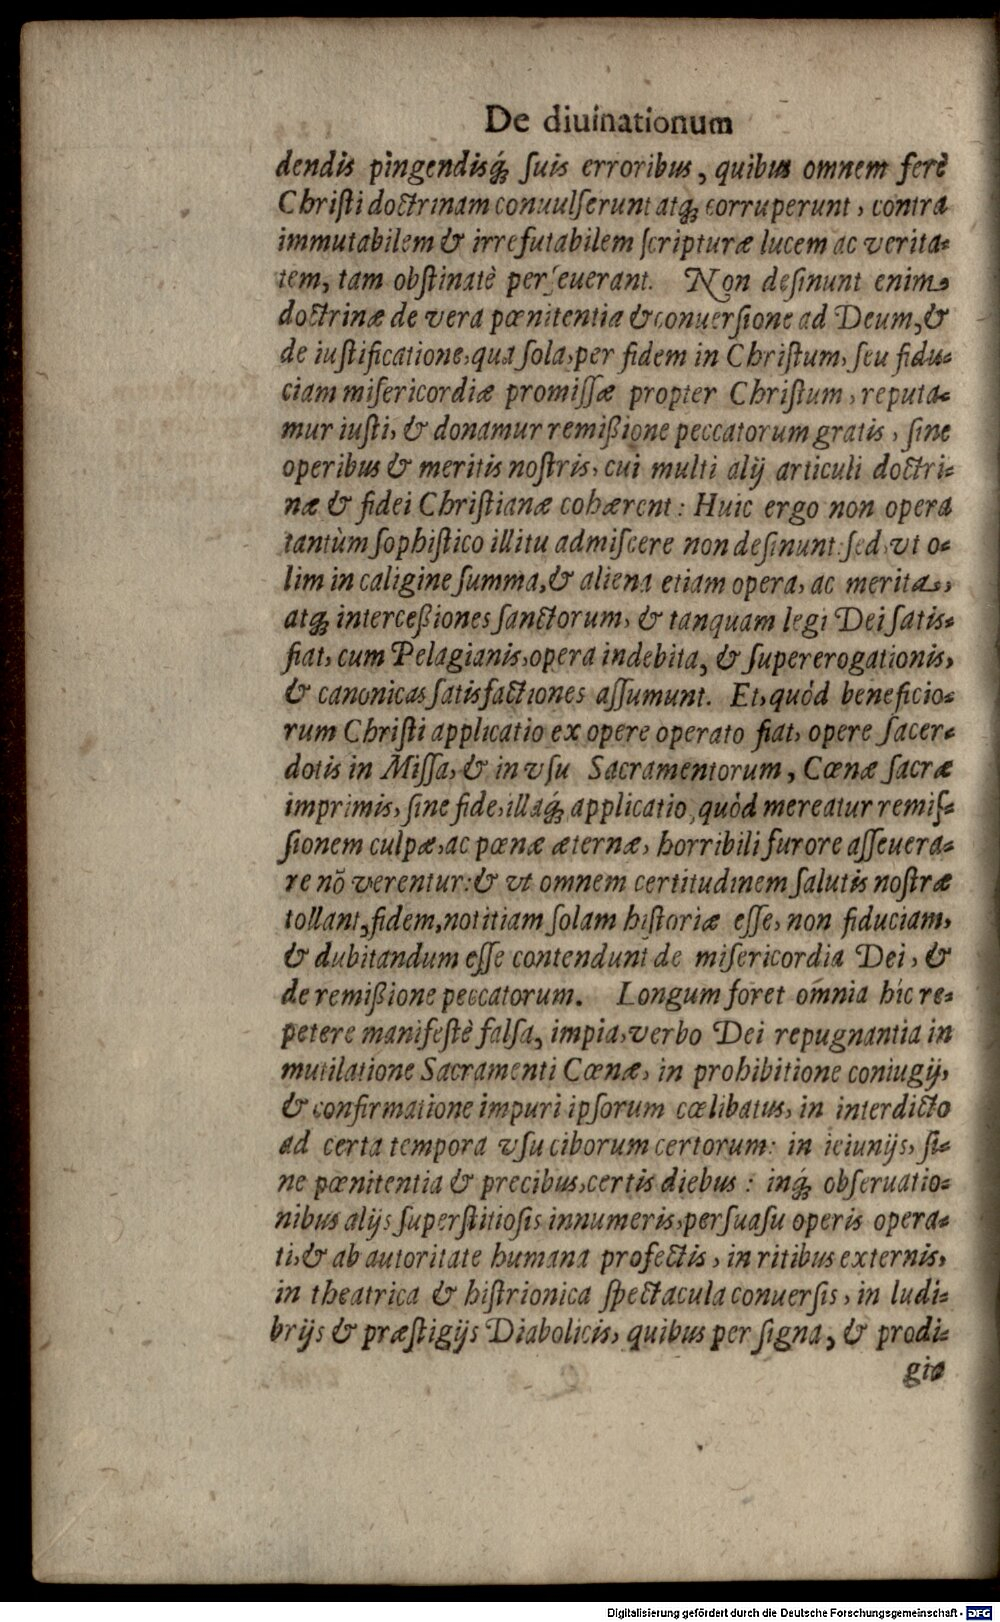 De diuinationum
dendis pingendisq́; ſuis erroribus, quibus omnem ferè
Chriſti doctrinam conuulſerunt atq; corruperunt, contra
immutabilem & irrefutabilem ſcripturæ lucem ac verita-
tem, tam obſtinatè perſeuerant. Non deſinunt enim
doctrinæ de vera pœnitentia & conuerſione ad Deum, &
de iuſtificatione, qua ſola, per fidem in Chriſtum, ſeu fidu-
ciam miſericordiæ promiſſæ propter Chriſtum, reputa-
mur iuſti, & donamur remißione peccatorum gratis, ſine
operibus & meritis noſtris, cui multi alij articuli doctri-
næ & fidei Chriſtianæ cohærent: Huic ergo non opera
tantùm ſophiſtico illitu admiſcere non deſinunt: ſed, vt o-
lim in caligine ſumma, & aliena etiam opera, ac merita,
atq; interceßiones ſanctorum, & tanquam legi Dei ſatis-
fiat, cum Pelagianis, opera indebita, & ſupererogationis,
& canonicas ſatisfactiones aſſumunt. Et, quòd beneficio-
rum Chriſti applicatio ex opere operato fiat, opere ſacer-
dotis in Miſſa, & in vſu Sacramentorum, Cœnæ ſacræ
imprimis, ſine fide, illaq́; applicatio, quòd mereatur remiſ-
ſionem culpæ, ac pœnæ æternæ, horribili furore aſſeuera-
re nõ verentur: & vt omnem certitudinem ſalutis noſtræ
tollant, fidem, notitiam ſolam hiſtoriæ eſſe, non fiduciam,
& dubitandum eſſe contendunt de miſericordia Dei, &
de remißione peccatorum. Longum foret omnia hîc re-
petere manifeſtè falſa, impia, verbo Dei repugnantia in
mutilatione Sacramenti Cœnæ, in prohibitione coniugij,
& confirmatione impuri ipſorum cœlibatus, in interdicto
ad certa tempora vſu ciborum certorum: in ieiunijs, ſi-
ne pœnitentia & precibus, certis diebus: inq́; obſeruatio-
nibus alijs ſuperſtitioſis innumeris, perſuaſu operis opera-
ti, & ab autoritate humana profectis, in ritibus externis,
in theatrica & hiſtrionica ſpectacula conuerſis, in ludi-
brijs & præſtigijs Diabolicis, quibus per ſigna, & prodi-
gia
Digitalisierung gefördert durch die Deutsche Forschungsgemeinschaft - DFG